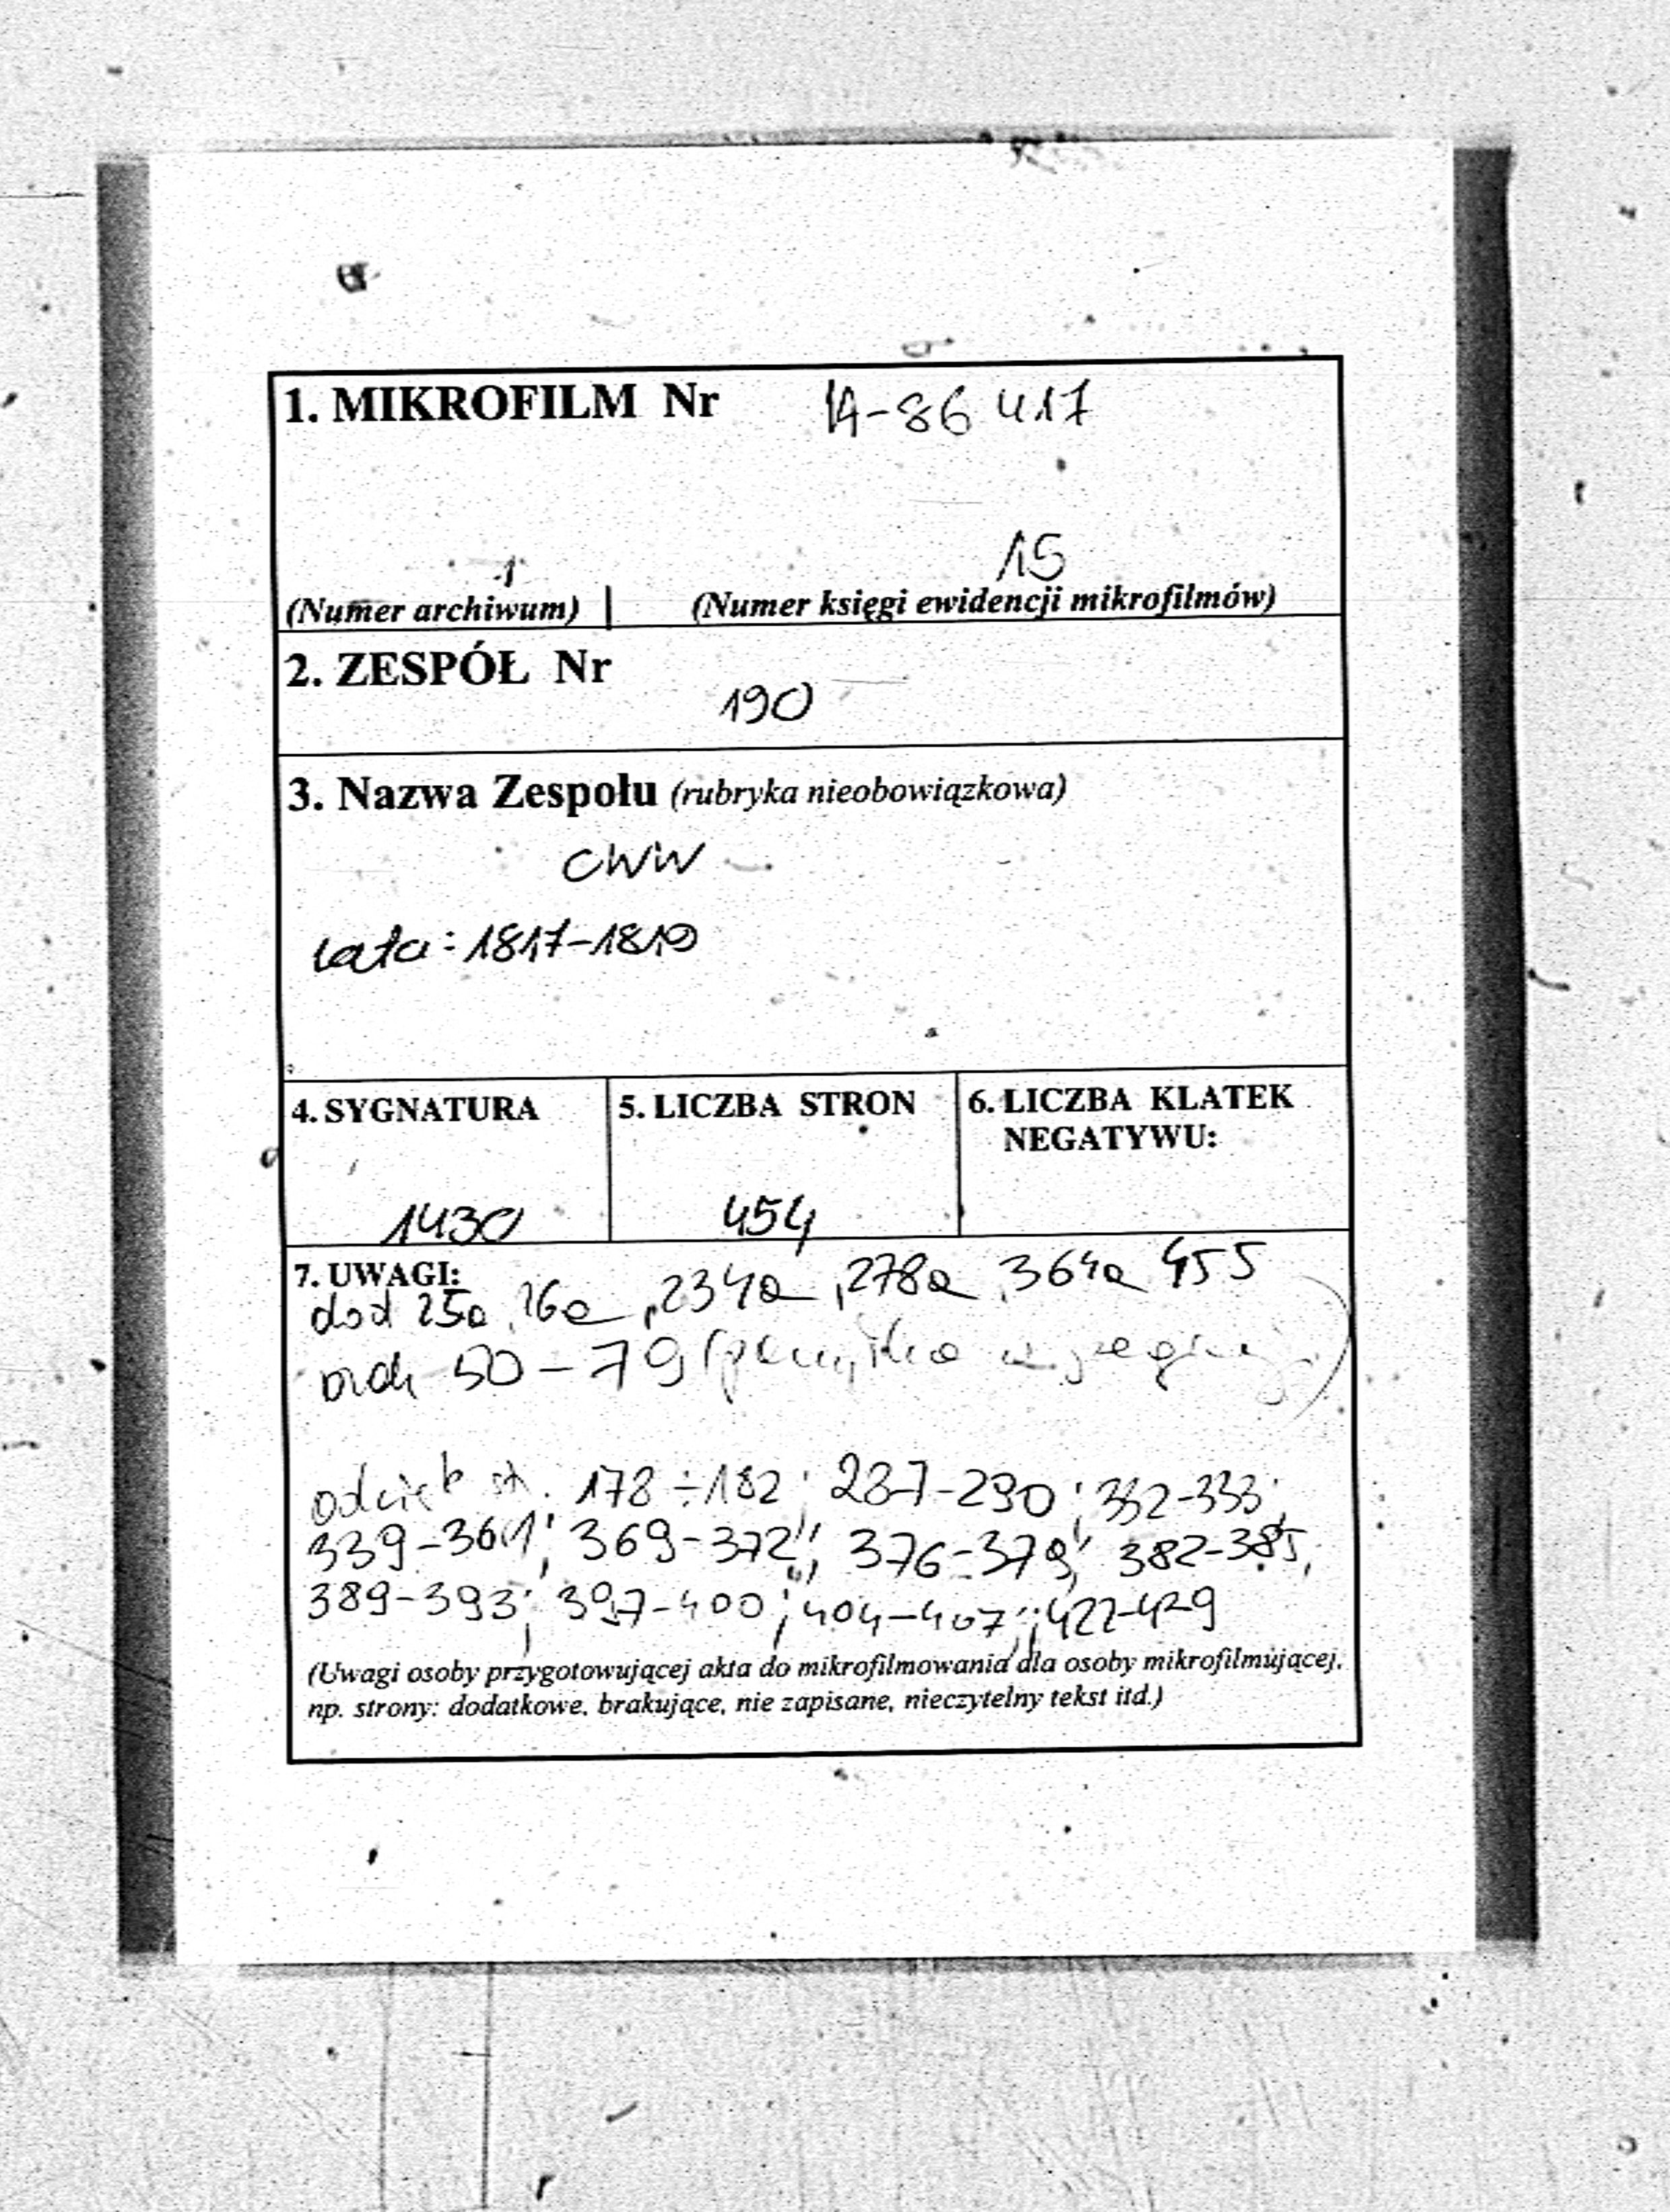 1. MIKROFILM Nr 14-86 417
1 15
(Numer archiwum) | (Numer księgi ewidencji mikrofilmów)
2. ZESPÓŁ Nr
190
3. Nazwa Zespołu (rubryka nieobowiązkowa)
CWW
lata: 1817-1819
4. SYGNATURA 5. LICZBA STRON 6. LICZBA KLATEK
NEGATYWU:
1430 454
7. UWAGI:
dod 25a, 26a, 234a, 278a, 364a 455
brak 50-79 (pomyłka w paginacji)
st. 178÷182; 287-290; 332-333;
339-361; 369-372; 376-379; 382-385;
389-393; 397-400; 404-407; 422-429
(Uwagi osoby przygotowującej akta do mikrofilmowania dla osoby mikrofilmującej,
np. strony: dodatkowe, brakujące, nie zapisane, nieczytelny tekst itd.)